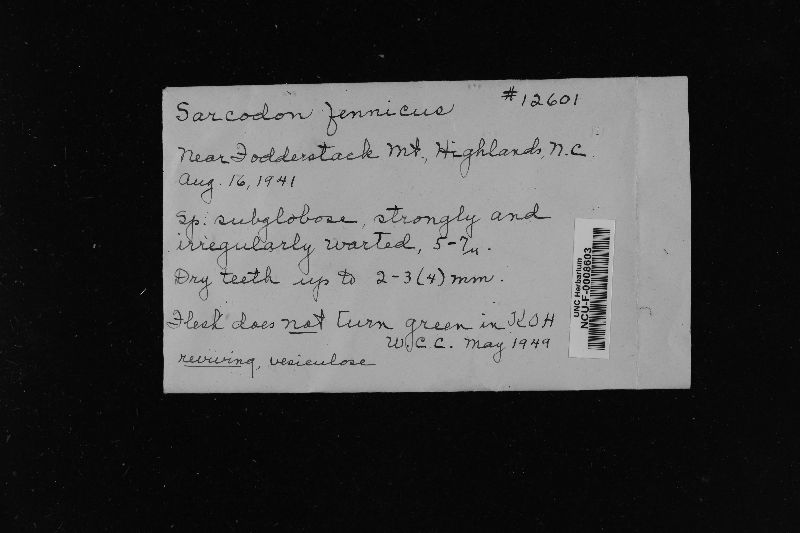 Sarcodon fennicus #12601
Near Fodderstack Mt., Highlands, N.C.
Aug. 16, 1941
Sp. subglobose, strongly and
irregularly warted, 5-7µ.
Dry teeth up to 2-3(4) mm.
Flesh does not turn green in KOH
W.C.C. May 1949
reviving, vesiculose
UNC Herbarium
NCU-F-0008603